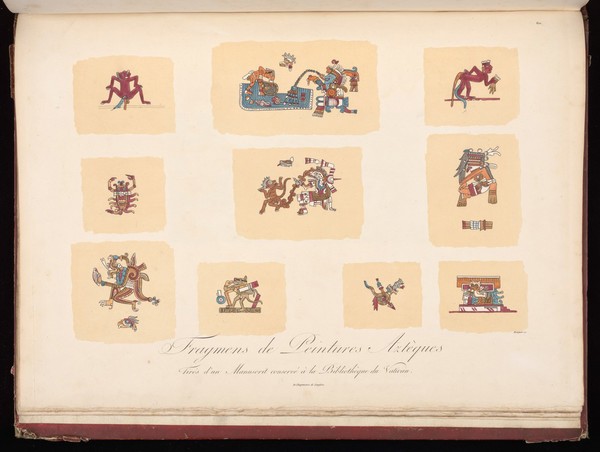 Fragmens de Peintures Aztèques
Tirés d'un Manuscrit conservé à la Bibliothèque du Vatican.